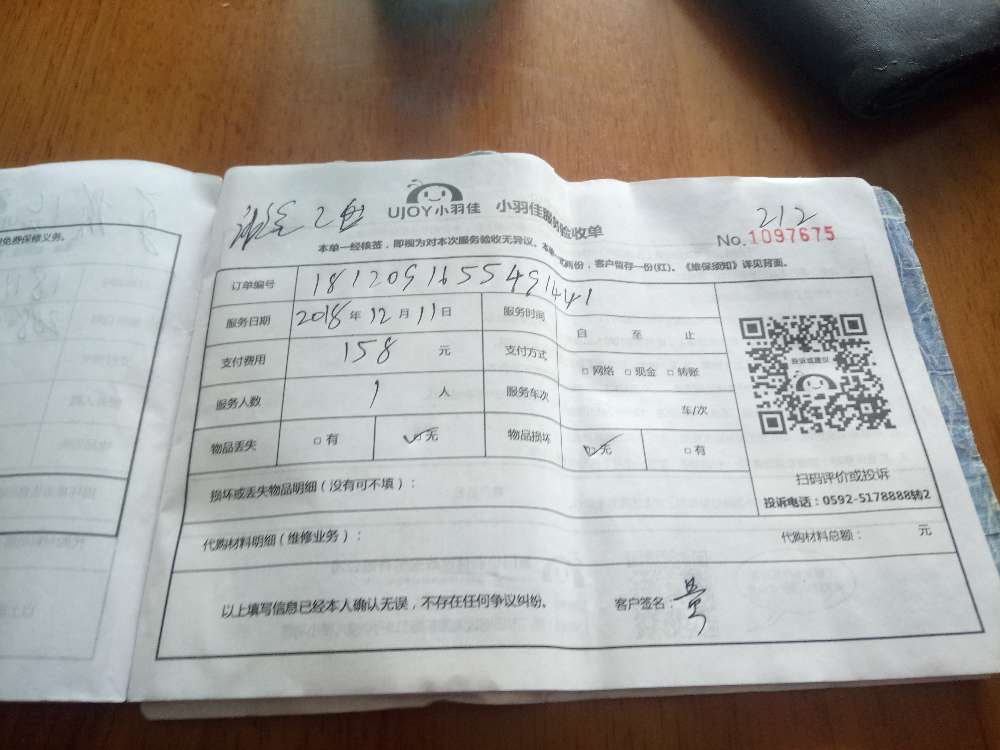 UJOY小羽佳 小羽佳服务验收单
212
No.1097675
本单一经核签，即视为对本次服务验收无异议。本单一式两份，客户留存一份(红)。《维保须知》详见背面。
订单编号 1812091655491441
服务日期 2018年12月11日 服务时间 自 至 止
支付费用 158 元 支付方式 □网络 □现金 □转账
服务人数 1 人 服务车次 车/次
物品丢失 □有 ☑无 物品损坏 ☑无 □有
投诉或建议
扫码评价或投诉
投诉电话：0592-5178888转2
损坏或丢失物品明细（没有可不填）：
代购材料明细（维修业务）： 代购材料总额： 元
以上填写信息已经本人确认无误，不存在任何争议纠纷。 客户签名：
免费保修义务。